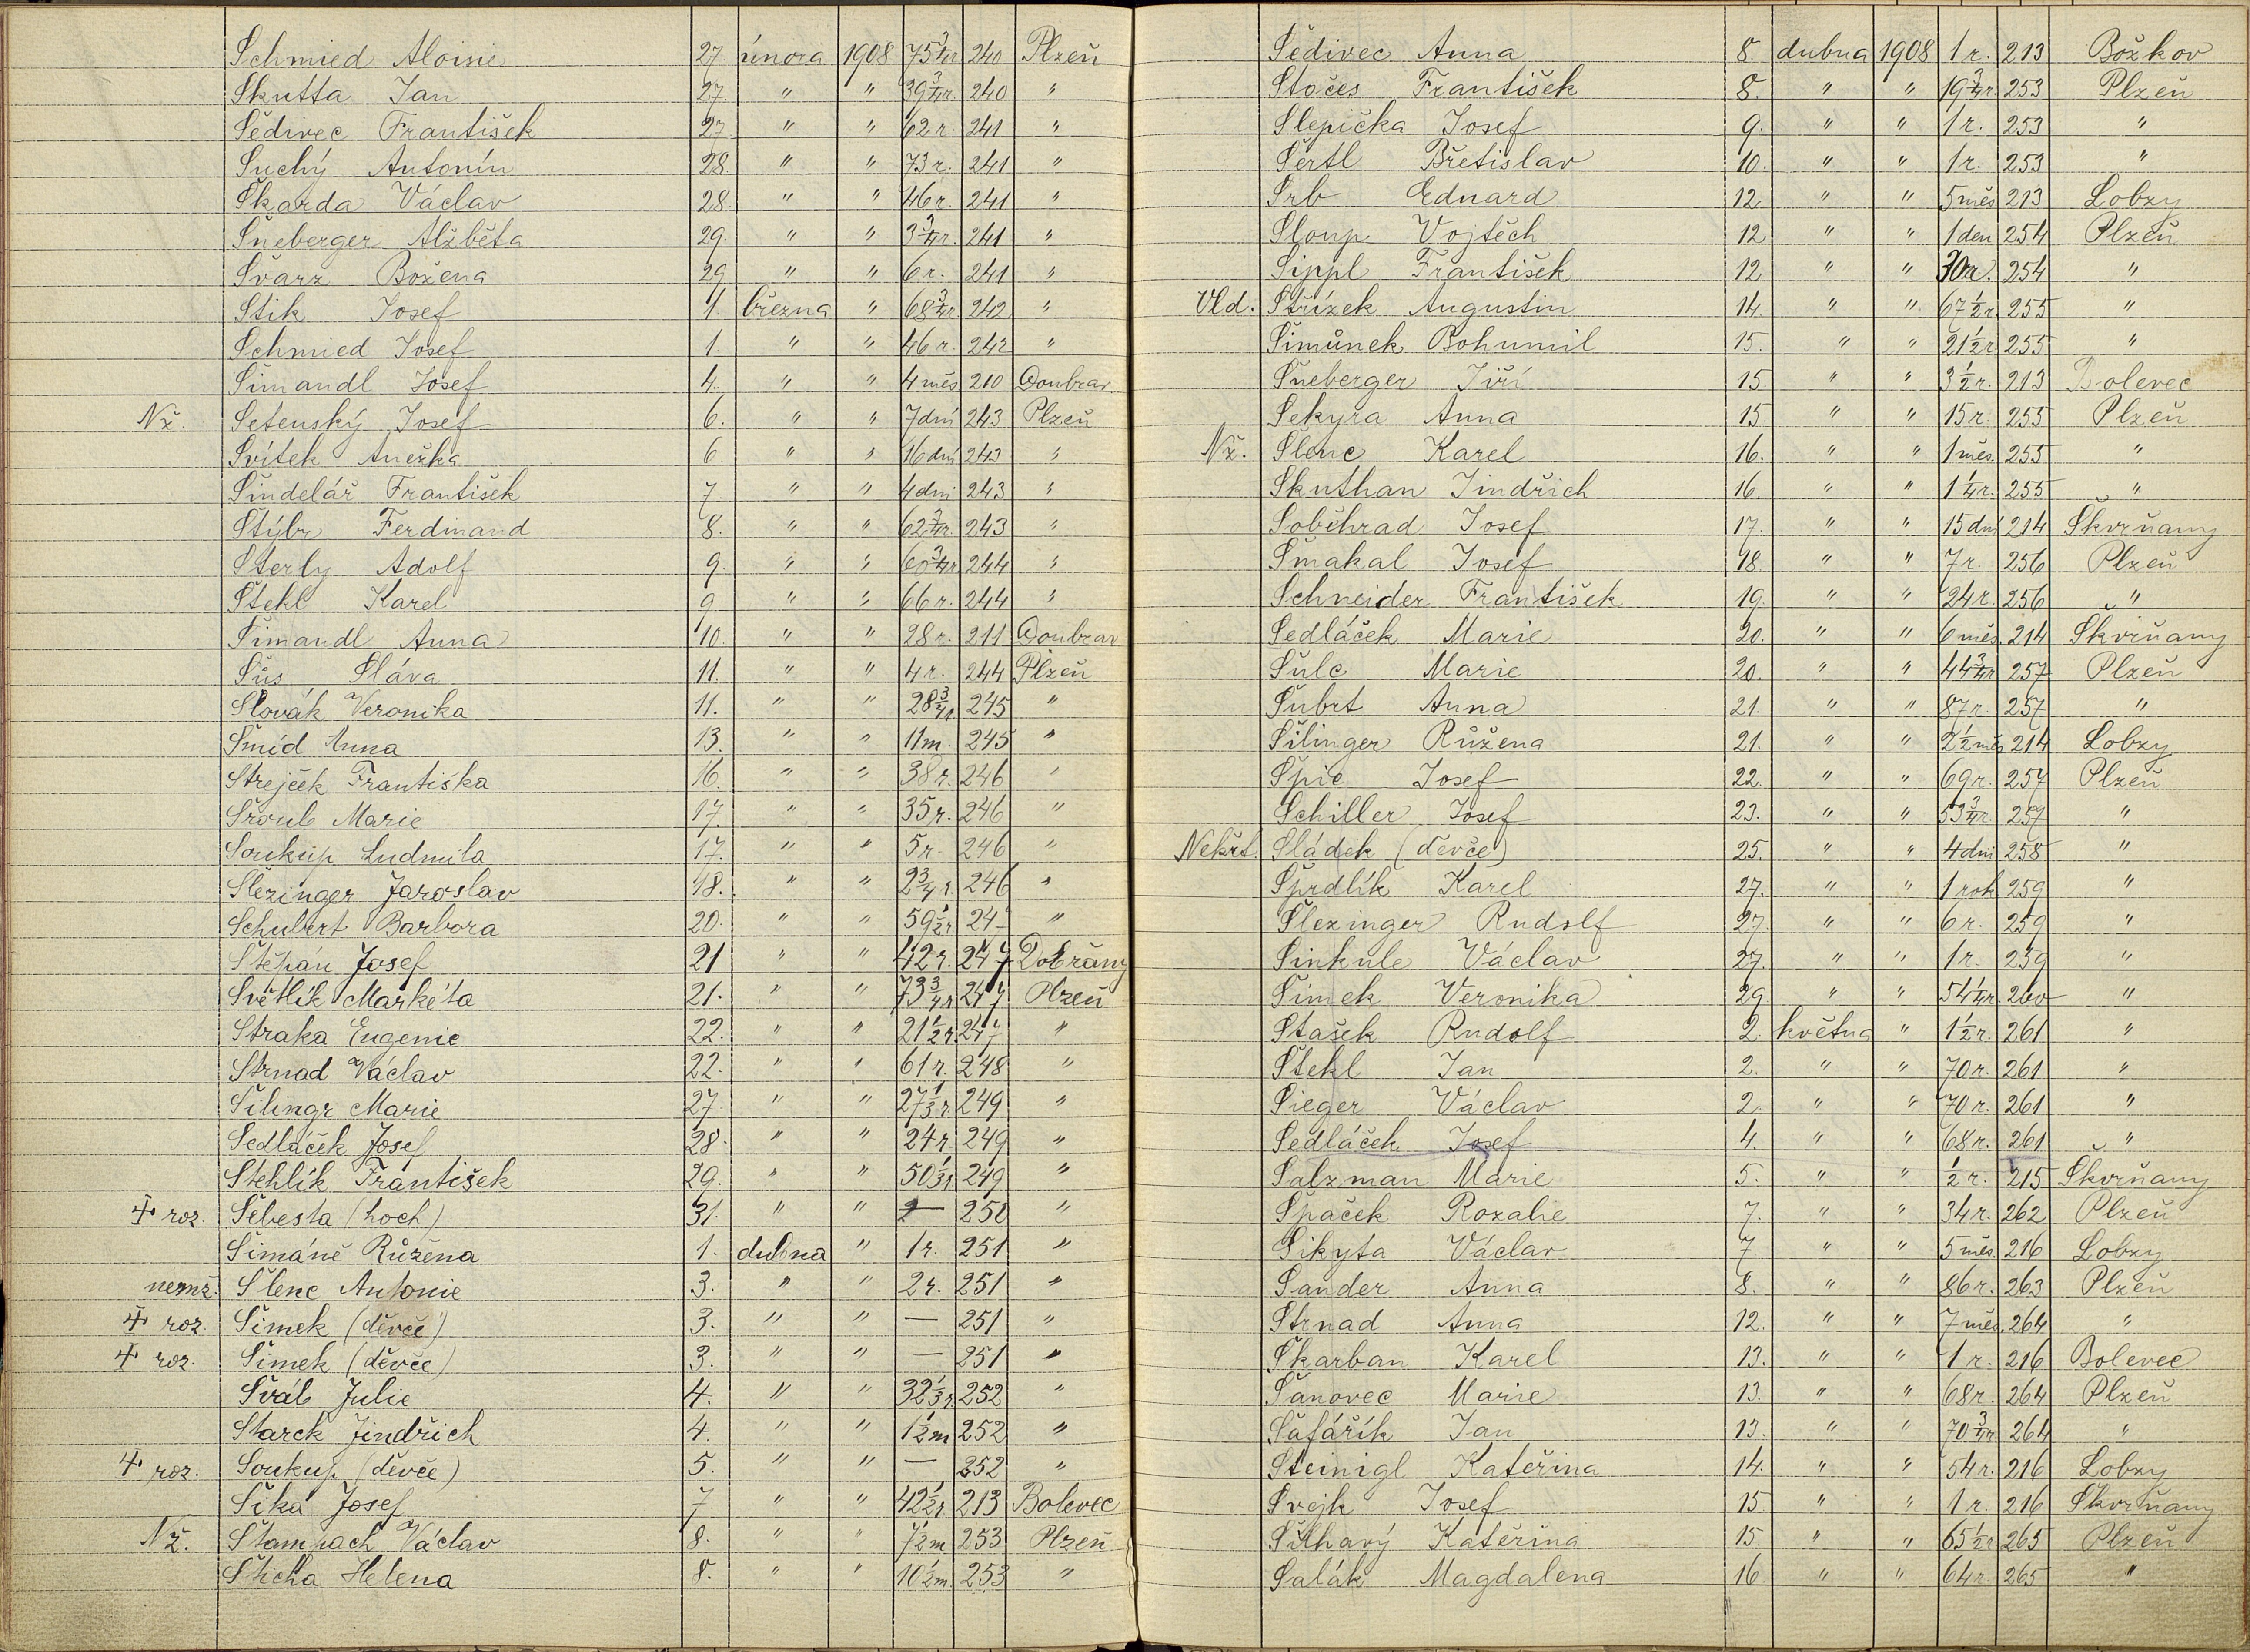 Schmied Aloisie 27. února 1908 75 3/4 r. 240 Plzeň
Skutta Jan 27. " " 39 3/4 r. 240 "
Šedivec František 27. " " 62 r. 241 "
Suchý Antonín 28. " " 73 r. 241 "
Škarda Václav 28. " " 46 r. 241 "
Šneberger Alžběta 29. " " 3 3/4 r. 241 "
Švarz Božena 29. " " 6 r. 241 "
Stik Josef 1. března " 68 3/4 r. 242 "
Schmied Josef 1. " " 46 r. 242 "
Šimandl Josef 4. " " 4 měs 210 Doubrav.
Nž. Setenský Josef 6. " " 7 dní 243 Plzeň
Svítek Anežka 6. " " 16 dní 243 "
Šindelář František 7. " " 4 dni 243 "
Štýbr Ferdinand 8. " " 62 3/4 r. 243 "
Sterly Adolf 9. " " 60 3/4 r. 244 "
Štekl Karel 9. " " 66 r. 244 "
Šimandl Anna 10. " " 28 r. 211 Doubrav
Šůs Sláva 11. " " 4 r. 244 Plzeň
Slovák Veronika 11. " " 28 3/4 r. 245 "
Šmíd Anna 13. " " 11 m. 245 "
Strejček Františka 16. " " 38 r. 246 "
Šroub Marie 17. " " 35 r. 246 "
Soukup Ludmila 17. " " 5 r. 246 "
Šlezinger Jaroslav 18. " " 2 3/4 r. 246 "
Schubert Barbora 20. " " 59 1/2 r. 247 "
Štěpán Josef 21 " " 42 r. 247 Dobřany
Světlík Markéta 21. " " 73 3/4 r. 247 Plzeň
Straka Eugenie 22. " " 21 1/2 r. 247 "
Strnad Václav 22. " " 61 r. 248 "
Šilingr Marie 27 " " 27 1/3 r. 249 "
Sedláček Josef 28. " " 24 r. 249 "
Stehlík František 29. " " 50 1/3 r. 249 "
‡ roz. Šebesta (hoch) 31. " " — 250 "
Šimáně Růžena 1. dubna " 1 r. 251 "
nemž. Šlenc Antonie 3. " " 2 r. 251 "
‡ roz. Šimek (děvče) 3. " " — 251 "
‡ roz. Šimek (děvče) 3. " " — 251 "
Šváb Julie 4. " " 32 1/3 r. 252 "
Starck Jindřich 4. " " 1 1/2 m 252 "
‡ roz. Soukup (děvče) 5. " " — 252 "
Sika Josef 7 " " 42 1/2 r. 213 Bolevec
Nž. Štampach Václav 8. " " 7 1/2 m 253 Plzeň
Štícha Helena 8. " " 10 1/2 m. 253 "
Šedivec Anna 8. dubna 1908 1 r. 213 Božkov
Stočes František 8. " " 19 3/4 r. 253 Plzeň
Slepička Josef 9. " " 1 r. 253 "
Šertl Břetislav 10. " " 1 r. 253 "
Srb Eduard 12. " " 5 měs 213 Lobzy
Sloup Vojtěch 12 " " 1 den 254 Plzeň
Sippl František 12 " " 30 r. 254 "
Vld. Střízek Augustin 14. " " 67 1/2 r. 255 "
Šimůnek Bohumil 15. " " 21 1/2 r. 255 "
Šneberger Jiří 15. " " 3 1/2 r. 213 Bolevec
Sekyra Anna 15. " " 15 r. 255 Plzeň
Nž. Šlenc Karel 16. " " 1 měs. 255 "
Skuthan Jindřich 16. " " 1 1/4 r. 255 "
Soběhrad Josef 17. " " 15 dní 214 Škvrňany
Šmakal Josef 18. " " 7 r. 256 Plzeň
Schneider František 19. " " 24 r. 256 "
Sedláček Marie 20. " " 6 měs. 214 Škvrňany
Šulc Marie 20. " " 44 3/4 r. 257 Plzeň
Šubrt Anna 21. " " 87 r. 257 "
Šilinger Růžena 21. " " 2 1/2 měs 214 Lobzy
Špic Josef 22. " " 69 r. 257 Plzeň
Schiller Josef 23. " " 53 3/4 r. 257 "
Nekřt. Sládek (děvče) 25. " " 4 dni 258 "
Šprdlík Karel 27. " " 1 rok 259 "
Šlezinger Rudolf 27. " " 6 r. 259 "
Sinkule Václav 27. " " 1 r. 259 "
Šimek Veronika 29 " " 54 1/4 r. 260 "
Stašek Rudolf 2. května " 1 1/2 r. 261 "
Štekl Jan 2. " " 70 r. 261 "
Sieger Václav 2. " " 70 r. 261 "
Sedláček Josef 4. " " 68 r. 261 "
Salzman Marie 5. " " 1/2 r. 215 Škvrňany
Špaček Rozalie 7. " " 34 r. 262 Plzeň
Sikyta Václav 7 " " 5 měs. 216 Lobzy
Sander Anna 8. " " 86 r. 263 Plzeň
Strnad Anna 12. " " 7 měs. 264 "
Škarban Karel 13. " " 1 r. 216 Bolevec
Šanovec Marie 13. " " 68 r. 264 Plzeň
Šafářík Jan 13. " " 70 3/4 r. 264 "
Steinigl Kateřina 14. " " 54 r. 216 Lobzy
Švejk Josef 15. " " 1 r. 216 Škvrňany
Šilhavý Kateřina 15. " " 65 1/2 r. 265 Plzeň
Salák Magdalena 16. " " 64 r. 265 "